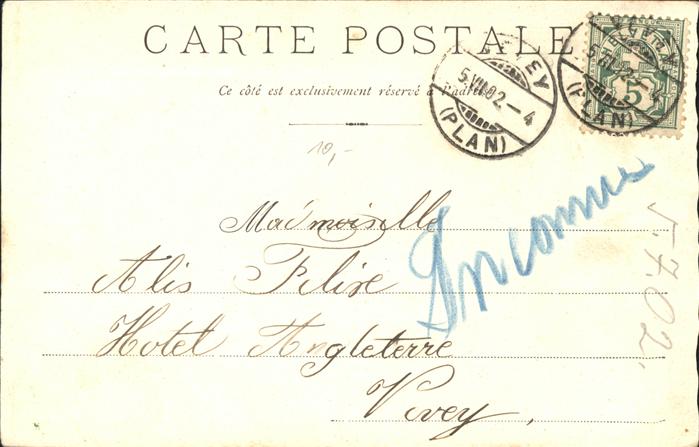 CARTE POSTALE
Ce côté est exclusivement réservé à l'adresse
VEVEY
5.VII.02-4
(PLAN)
5.VII.02-4
(PLAN)
5
10,-
Mad'moiselle
Alis Filixe
Hotel Angleterre
Vevey,
Inconnu
5.7.02.